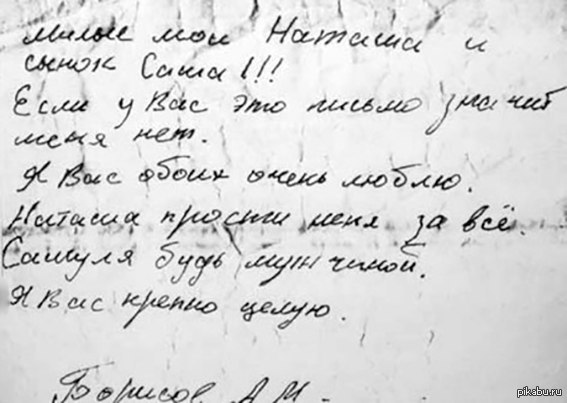 Милые мои Наташа и
сынок Саша!!!
Если у Вас это письмо значит
меня нет.
Я Вас обоих очень люблю.
Наташа прости меня за всё.
Сашуля будь мужчиной.
Я Вас крепко целую.
Борисов А.М.
pikabu.ru